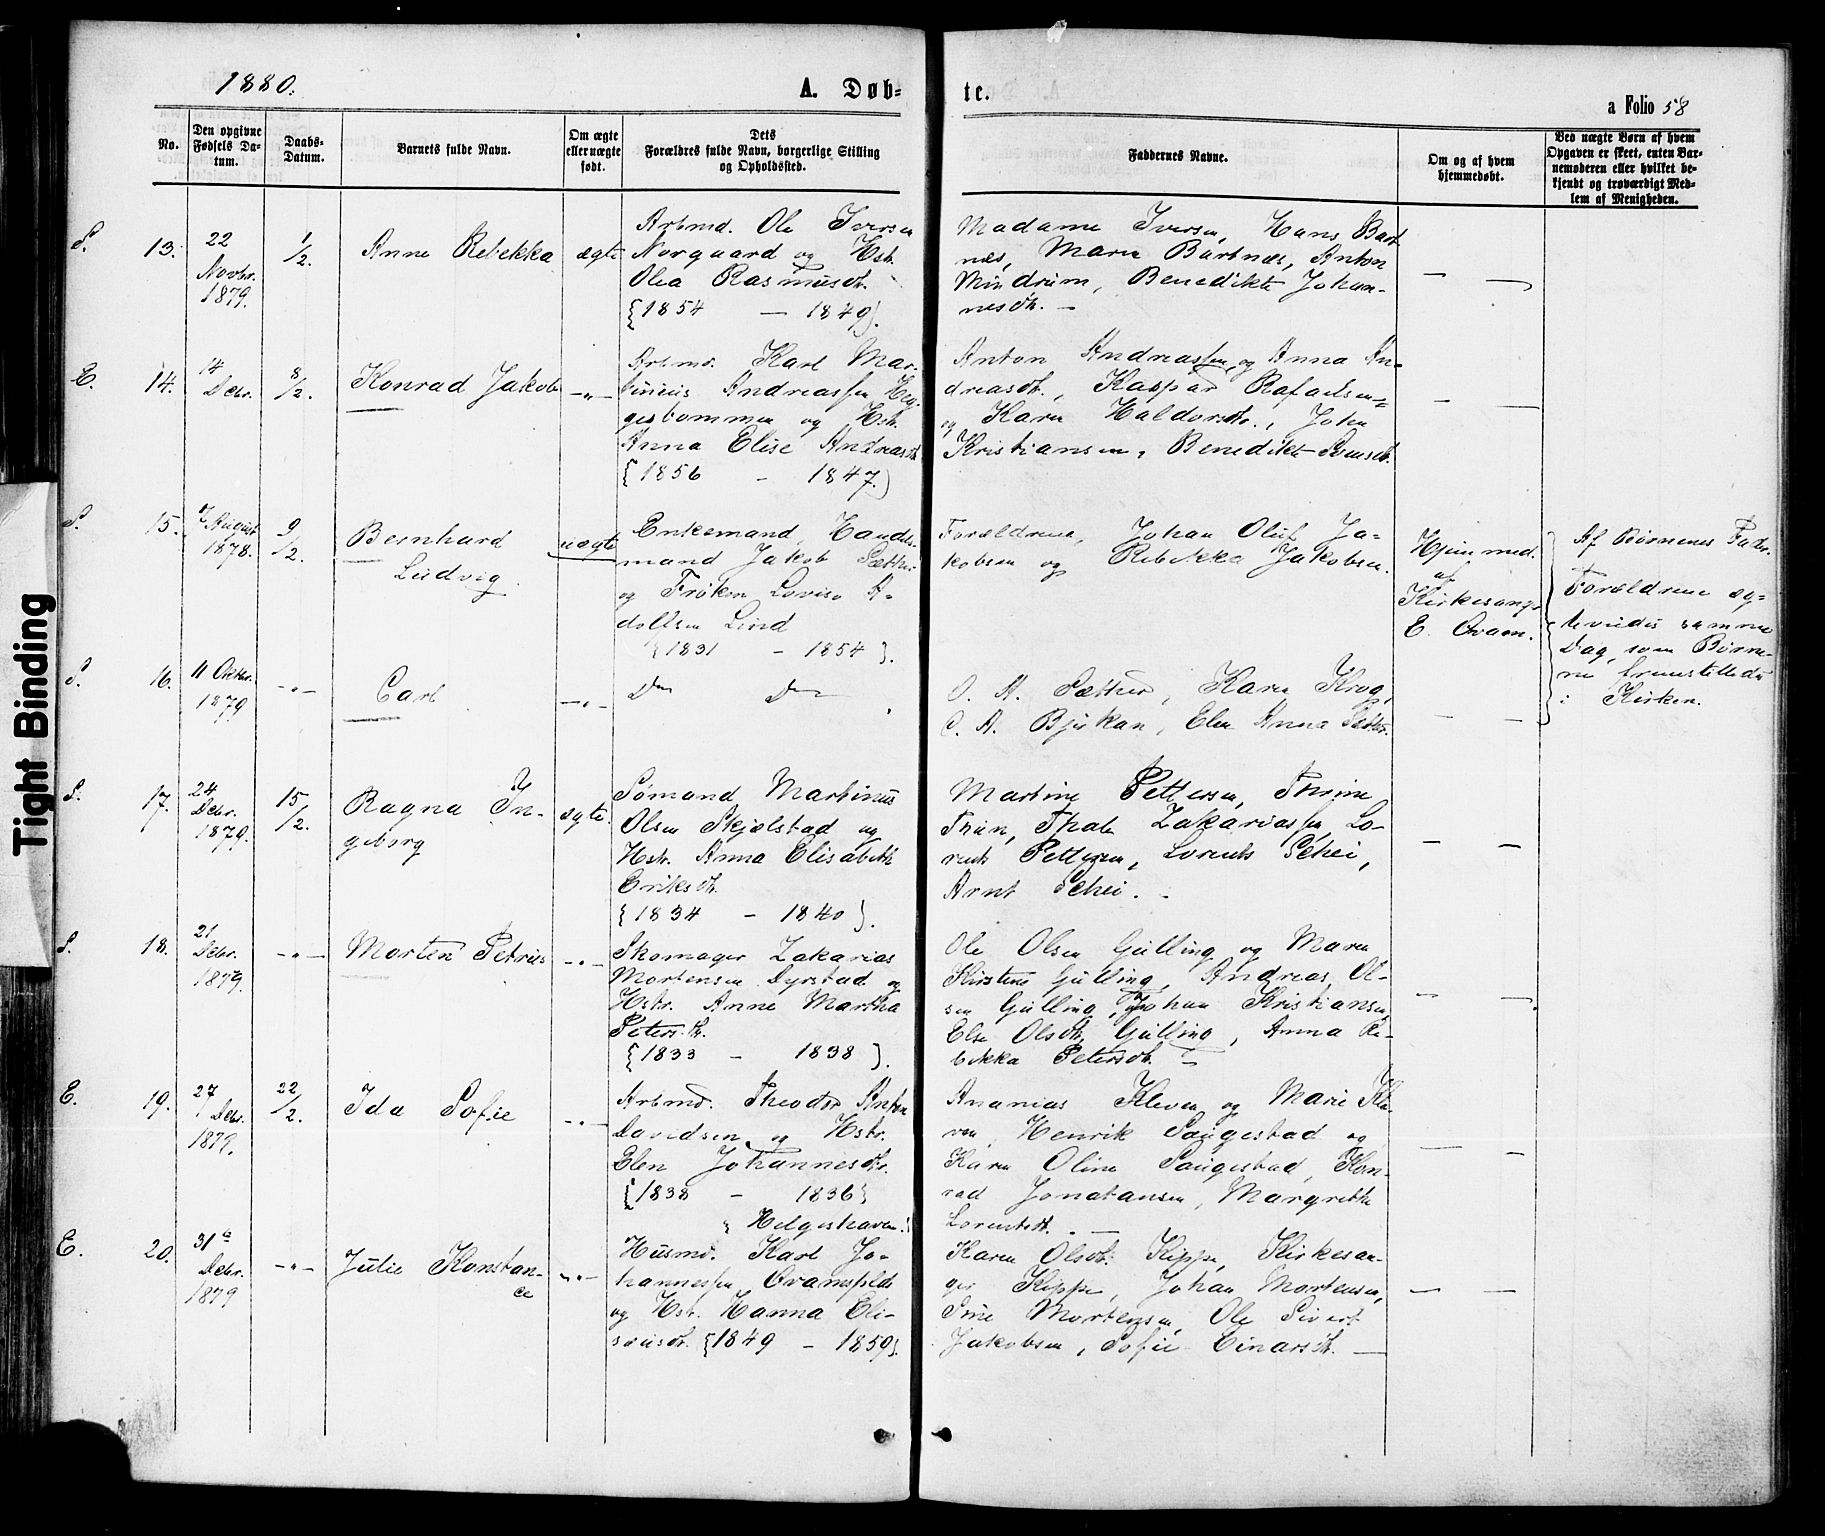 1880.
A. Døb-
te.
a Folio 58
No.
Den opgivne Fødsels Da-tum.
Daabs-Datum.
Barnets fulde Navn.
Om ægte eller uægte født.
Dets
Forældres fulde Navn, borgerlige Stilling
og Opholdssted.
Faddernes Navne.
Om og af hvem
hjemmedøbt.
Ved uægte Børn af hvem
Opgaven er skeet, enten Bar-
nemoderen eller hvilket be-
kjendt og troværdigt Med-
lem af Menigheden.
S. 13. 22 Novbr. 1879. 1/2. Anne Rebekka ægte
Arbmd. Ole Iversen
Norgaard og Hstr.
Olea Rasmusdt.
{1854 — 1849}.
Madame Iversen, Hans Bart
nes, Maren Bartnes, Anton
Mindrum, Benedikte Johan-
nesdt. —
E. 14. 14 Debr. 8/2. Konrad Jakob —"—
Arbmd. Karl Mar-
tinius Andreassen Heg-
gesbommen og Hstr.
Anna Elise Andreasdt
{1856 - 1847.}
Anton Andreassen og Anna An-
dreasdt., Kaspar Rafaelsen
og Karen Haldorsdtr., John
Kristiansen, Benedikte Svensdt.
S. 15. 7 August 1878. 9/2. Bernhard
Ludvig. uægte
Enkemand, Handels-
mand Jakob Sæther
og Frøken Lovise A-
dolfsen Lind
{1831 - 1854}.
Forældrene, Johan Oluf Ja-
kobsen og Rebekka Jakobsen.
Hjemmed.
af
Kirkesanger
E. Qvam.
Af Børnenes Fader.
Forældrene æg-
teviedes samme
Dag, som Børne-
ne fremstilledes
i Kirken.
S. 16. 11 Oktbr. 1879 -"- Carl —"—
Do Do
O. A. Sæther, Karen Krog,
C. A. Bjukan, Elen Anna Sæther.
S. 17. 24 Debr. 1879. 15/2. Ragna In-
geborg ægte.
Sømand Martinus
Olsen Skjelstad og
Hstr. Anna Elisabeth
Eriksdt.
{1834 - 1840}.
Martine Pettersen, Thrine
Thrin, Thale Zakariassen, Lo-
rents Pettersen, Lorents Schei,
Arnt Schei. -
S. 18. 21 Debr. 1879. -"- Morten Petrus -"-
Skomager Zakarias
Mortensen Dyrstad og
Hstr. Anne Martha
Petersdt.
{1833 - 1838}.
Ole Olsen Gulling og Maren
Kirstine Gulling, Andreas Ol-
sen Gulling, Johan Kristiansen,
Else Olsdt. Gulling, Anna Re-
bekka Petersdt. —
E. 19. 27 Debr. 1879. 22/2. Ida Sofie -"-
Arbmd. Theodor Anton
Davidsen og Hstr.
Elen Johannesdtr.
{1838 - 1836}
{Helgeshaven.}
Ananias Kleven og Marie Kle-
ven, Henrik Saugestad og
Karen Oline Saugestad, Kon-
rad Jonatansen, Margrethe
Lorentsdt. —
E. 20. 31te Debr. 1879 -"- Julie Konstan-
ce -"-
Husmd. Karl Jo-
hannessen Qvamsplds
og Hstr. Hanna Eli-
sæusdt. {1849 - 1859}.
Karen Olsdt. Kippe, Kirkesan-
ger Kippe, Johan Mortensen,
Sine Mortensen, Ole Sivert
Jakobsen, Sofie Einarsdt. —
Tight Binding